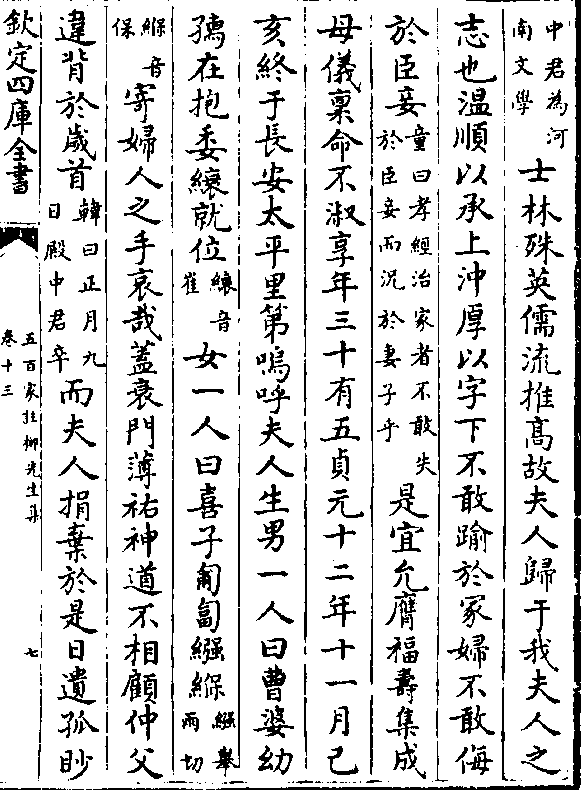 中君為河南文學士林殊英儒流推髙故夫人歸于我夫人之
志也温順以承上沖厚以字下不敢踰於冢婦不敢侮
於臣妾童曰孝經治家者不敢失於臣妾而况於妻子乎是宜允膺福壽集成
母儀稟命不淑享年三十有五貞元十二年十一月己
亥終于長安太平里第嗚呼夫人生男一人曰曹婆幼
孺在抱委縗就位縗音崔女一人曰喜子匍匐繈緥繈舉兩切
緥音保寄婦人之手哀哉蓋衰門薄祐神道不相顧仲父
違背於歲首韓曰正月九日殿中君卒而夫人捐棄於是日遺孤眇
欽定四庫全書
五百家註柳先生集
卷十三
七